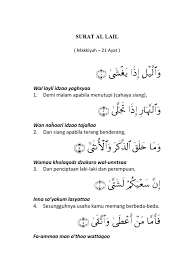 SURAT AL LAIL
( Makkiyah – 21 Ayat )
وَاللَّيْلِ إِذَا يَغْشَىٰ ﴿١﴾
Wal layli idzaa yaghsyaa
1. Demi malam apabila menutupi (cahaya siang),
وَالنَّهَارِ إِذَا تَجَلَّىٰ ﴿٢﴾
Wan nahaari idzaa tajallaa
2. Dan siang apabila terang benderang,
وَمَا خَلَقَ الذَّكَرَ وَالْأُنثَىٰ ﴿٣﴾
Wamaa khalaqadz dzakara wal-unntsaa
3. Dan penciptaan laki-laki dan perempuan,
إِنَّ سَعْيَكُمْ لَشَتَّىٰ ﴿٤﴾
Inna sa'yakum lasyattaa
4. Sesungguhnya usaha kamu memang berbeda-beda.
فَأَمَّا مَنْ أَعْطَىٰ وَاتَّقَىٰ ﴿٥﴾
Fa-ammaa man a'thaa wattaqaa